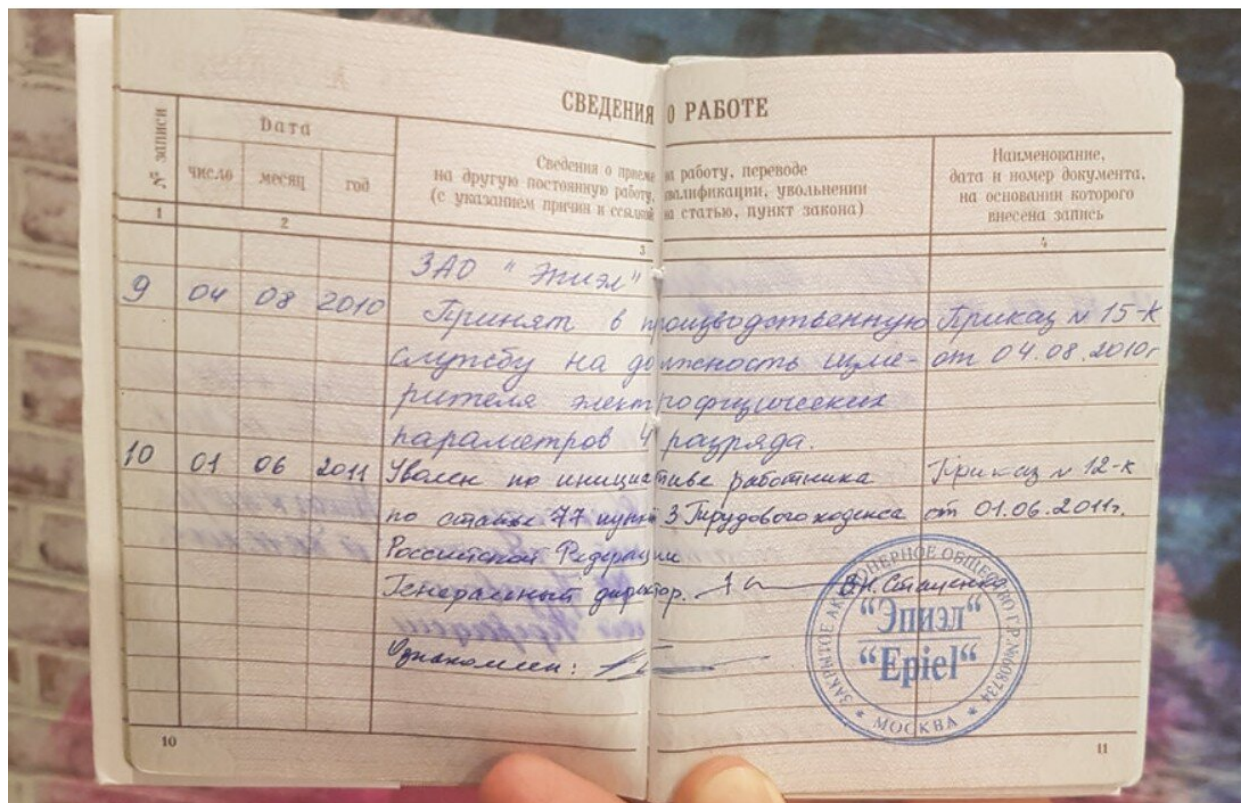 СВЕДЕНИЯ О РАБОТЕ
№ записи
Дата
число месяц год
Сведения о приеме на работу, переводе
на другую постоянную работу, квалификации, увольнении
(с указанием причин и ссылкой на статью, пункт закона)
Наименование,
дата и номер документа,
на основании которого
внесена запись
1 2 3 4
ЗАО "Эпиэл"
9 04 08 2010 Принят в производственную Приказ № 15-к
службу на должность изме- от 04.08.2010г
рителя электрофизических
параметров 4 разряда.
10 01 06 2011 Уволен по инициативе работника Приказ № 12-к
по статье 77 пункт 3 Трудового кодекса от 01.06.2011г.
Российской Федерации
Генеральный директор. Стаценко
Ознакомлен:
ЗАКРЫТОЕ АКЦИОНЕРНОЕ ОБЩЕСТВО Г.Р.№608734
"Эпиэл"
"Epiel"
* МОСКВА *
10 11